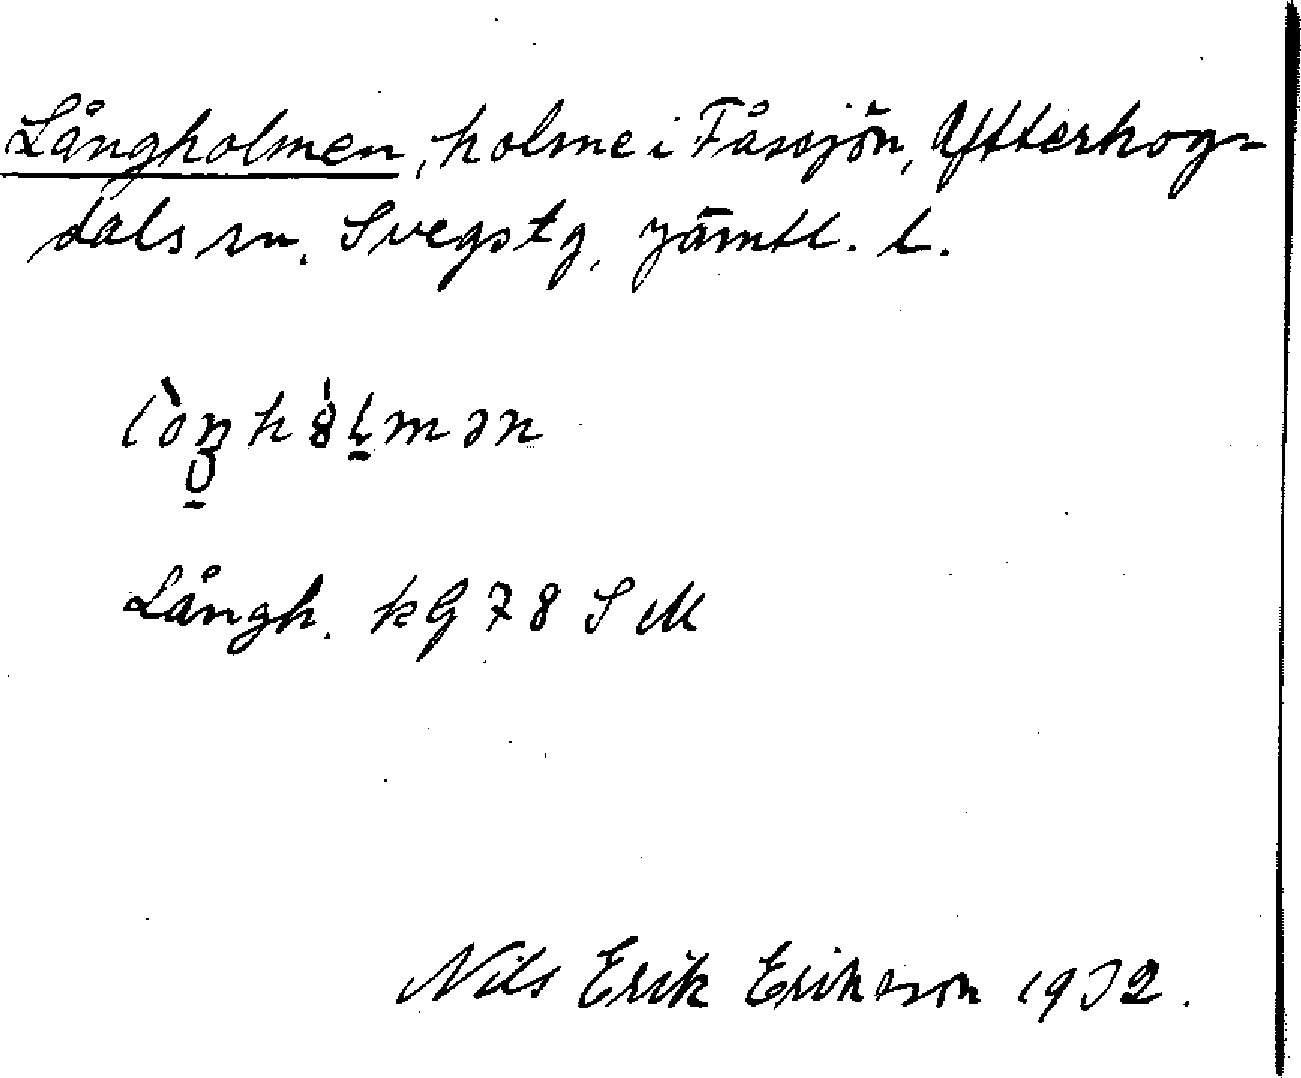 Långholmen, holme i Fåssjön, Ytterhog-
dals sn. Svegs tg, Jämtl. l.
Långh. kG 78 S M
Nils Erik Erikson 1932.